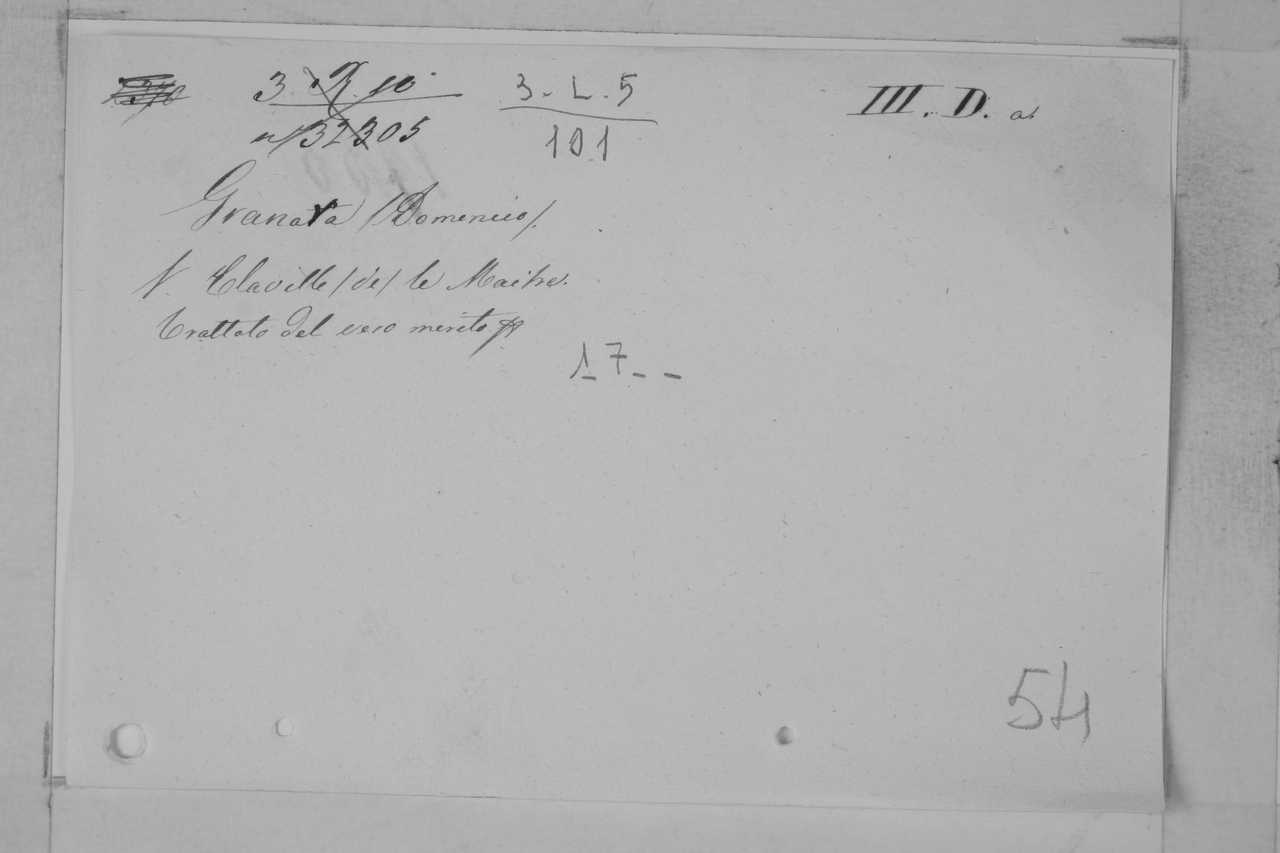 3. R. 10
n/32305
3 - L. 5
101
III. D. a)
Granata /Domenico/.
V. Claville /de/ le Maitre.
Trattato del vero merito
17 - -
54